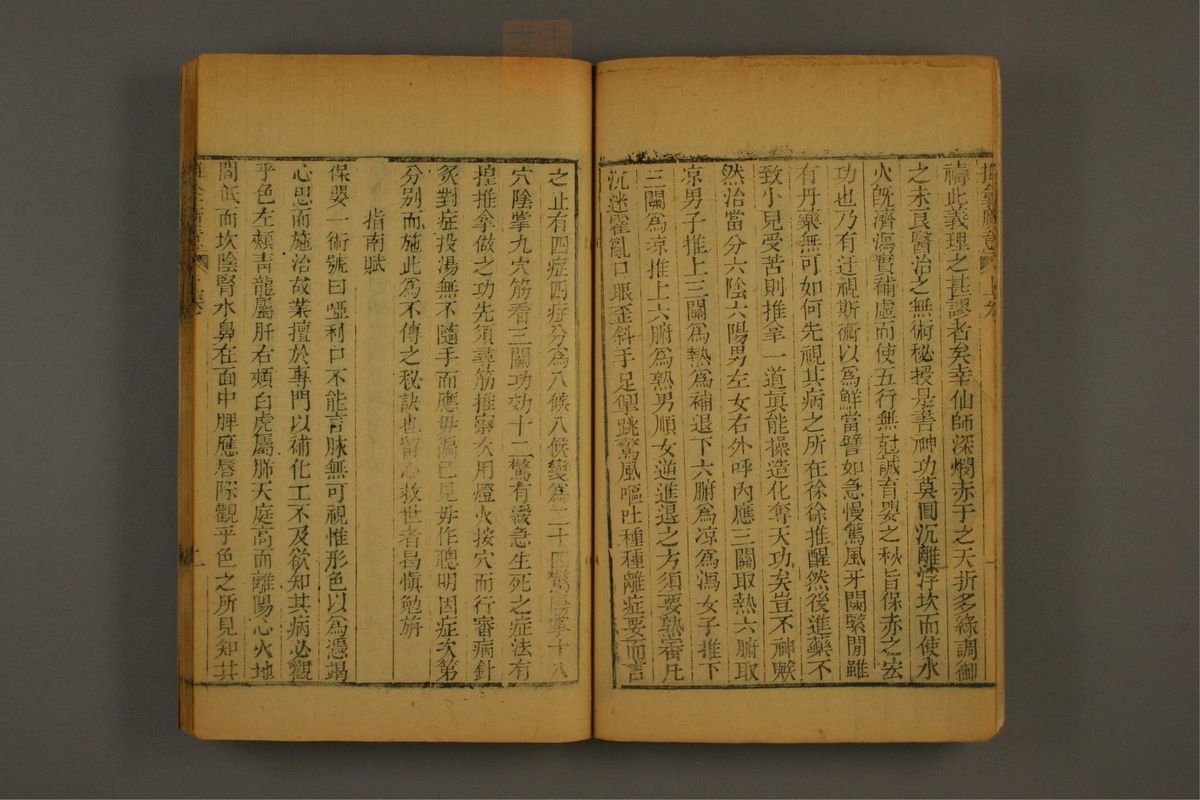 推拿廣意 上卷
禱此義理之甚謬者矣幸仙師深憫赤子之夭折多緣調御
之未良醫治之無術秘授是書神功莫囬沉離浮坎而使水
火旣濟瀉實補虛而使五行無尅誠育嬰之秋旨保赤之宏
功也乃有迂視斯術以爲鮮當譬如急慢驚風牙關緊閉雖
有丹藥無可如何先視其病之所在徐徐推醒然後進藥不
致小兒受苦則推拿一道眞能操造化奪天功矣豈不神歟
然治當分六陰六陽男左女右外呼內應三關取熱六腑取
凉男子推上三關爲熱爲補退下六腑爲凉爲瀉女子推下
三關爲凉推上六腑爲熟男順女逆進退之方須要熟審凡
沉迷霍亂口眼歪斜手足掣跳驚風嘔吐種種雜症要而言
之止有四症四症分爲八候八候變爲二十四驚陽掌十八
穴陰掌九穴筋看三關功効十二驚有緩急生死之症法有
揑推拿做之功先須尋筋推察次用燈火按穴而行審病針
灸對症投湯無不隨手而應毋偏己見毋作聰明因症次第
分别而施此爲不傳之秘訣也留心救世者曷愼勉旃
指南賦
保嬰一術號曰啞科口不能言脉無可視惟形色以爲憑竭
心思而施治故業擅於專門以補化工不及欲知其病必觀
乎色左頰青龍屬肝右頰白虎屬肺天庭高而離陽心火地
閣低而坎陰腎水鼻在面中脾應唇際觀乎色之所見知其